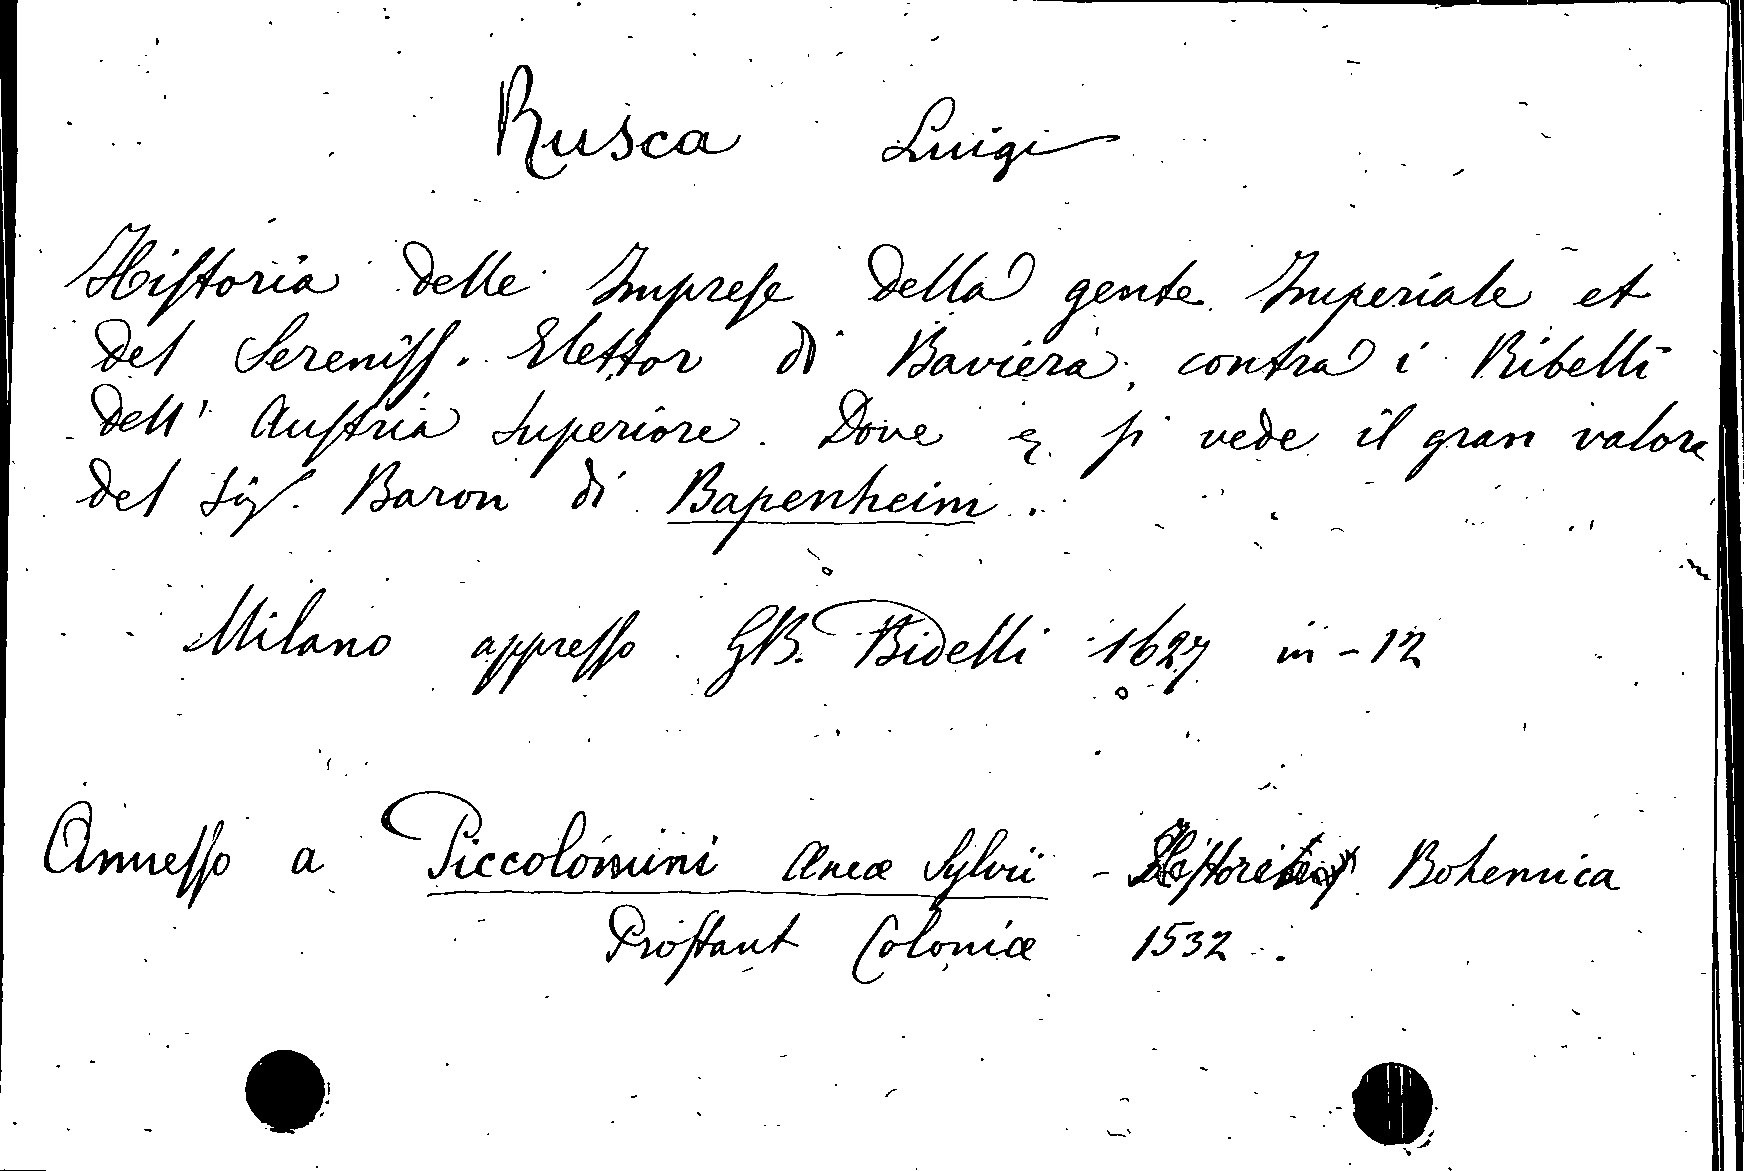 Rusca Luigi
Historia delle Imprese della gente Imperiale et
del Sereniss. Elettor di Baviera, contra i Ribelli
dell' Austria Superiore. Dove si vede il gran valore
del Sig. Baron di Bapenheim.
Milano appresso GB. Bidelli 1627 in-12
Annesso a Piccolomini Aneæ Sylvii - Bohemica
Prostant Coloniæ 1532.